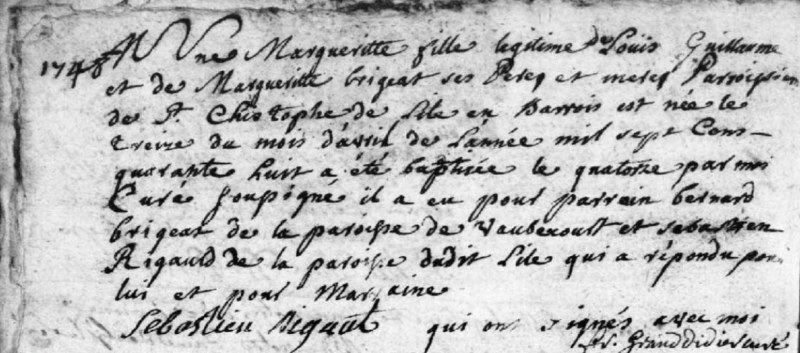 1748
Anne Margueritte fille legitime de Louïs Guillaume
et de Margueritte brigeat ses Peres et meres Parroissien
de St. Christophe de Lile en Barrois est née le
treize du mois d'avril de L'année mil sept Cens
quarante huit a été baptisée le quatorze par moi
Curé soussigné il a eu pour parrain bernard
brigeat de la paroisse de Vaubecourt et sebastien
Rigauld de la paroisse dudit Lile qui a répondu pour
lui et pour Marraine
Sebastien Rigault qui ont signés avec moi
Granddidier curé